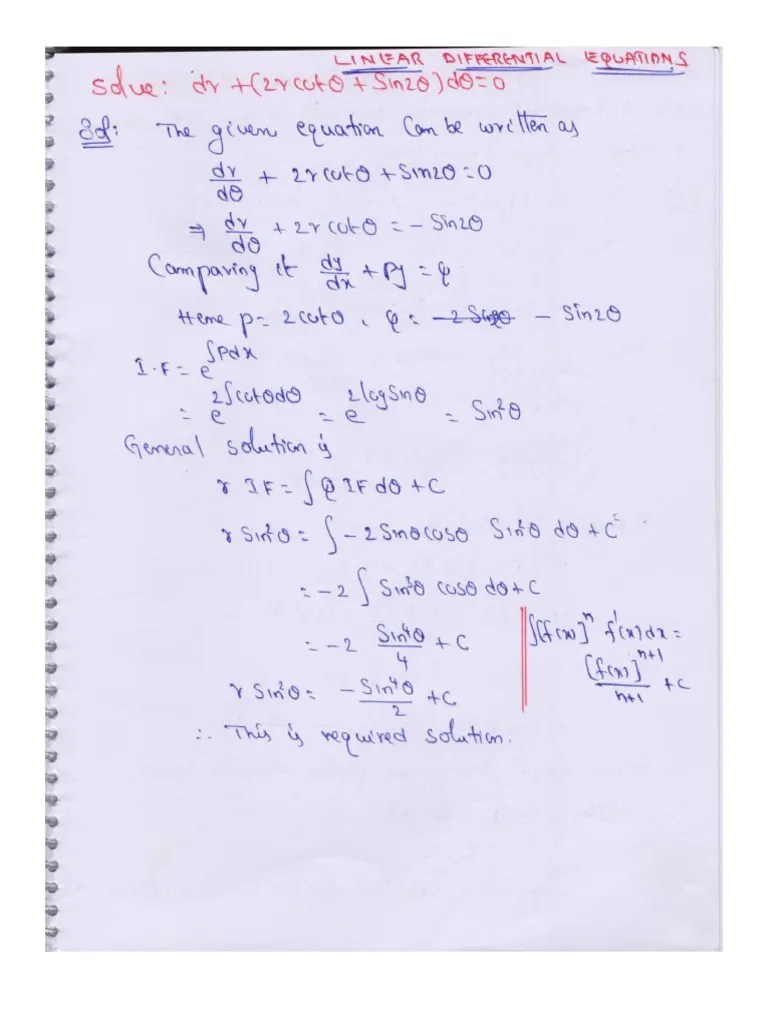 LINEAR DIFFERENTIAL EQUATIONS
Solve: dr + (2r cotθ + Sin2θ) dθ = 0
Sol: The given equation can be written as
dr/dθ + 2r cotθ + Sin2θ = 0
⇒ dr/dθ + 2r cotθ = - Sin2θ
Comparing it dy/dx + Py = Q
Here p = 2cotθ, Q = - Sin2θ
I.F = e^∫Pdx
= e^2∫cotθdθ = e^2logSinθ = Sin²θ
General solution is
r IF = ∫ Q IF dθ + C
r Sin²θ = ∫ -2Sinθcosθ Sin²θ dθ + C
= -2 ∫ Sin³θ cosθ dθ + C
= -2 Sin⁴θ/4 + C
∫[f(x)]^n f'(x)dx =
[f(x)]^(n+1)/(n+1) + C
r Sin²θ = -Sin⁴θ/2 + C
∴ This is required solution.